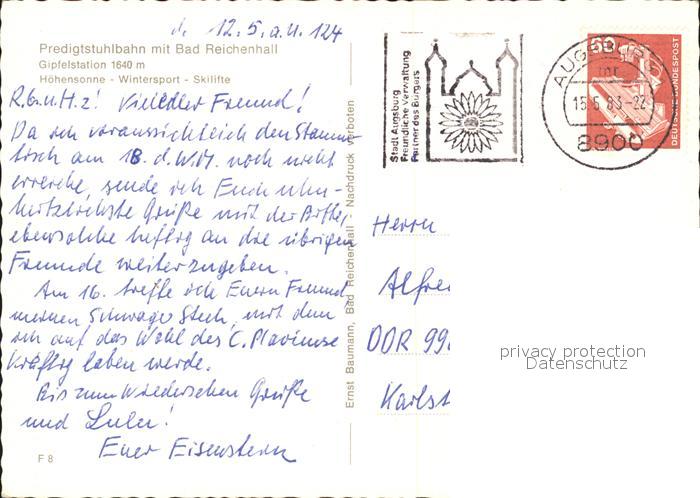 d. 12.5. a.U. 124
Predigtstuhlbahn mit Bad Reichenhall
Gipfelstation 1640 m
Höhensonne - Wintersport - Skilifte
R.G.u.H.z! Vieledler Freund!
Da ich voraussichtlich den Stamm-
tisch am 18. d. W.M. noch nicht
erreiche, sende ich Euch uhu-
herzlichste Grüße mit der Bitte,
ebensolche heftig an die übrigen
Freunde weiterzugeben.
Am 16. treffe ich Euern Freund
meinen Schwager Stech, mit dem
ich auf das Wohl des C. Plavense
kräftig laben werde.
Bis zum Wiedersehen Grüße
und Lulu!
Euer Eisenstern
F 8
Ernst Baumann, Bad Reichenhall Nachdruck verboten
Stadt Augsburg
Freundliche Verwaltung
Partner des Bürgers
AUGSBURG
15.5.83-22
8900
50
DEUTSCHE BUNDESPOST
Herrn
Alfre
DDR 99
Karlst
privacy protection
Datenschutz